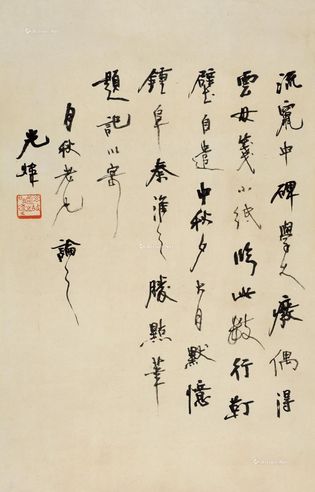 流寓中碑學久廢偶得
雲母箋小紙臨此數行訂
壁自遣中秋夕大月默憶
鍾阜秦淮之勝點筆
題記以寄
月秋老兄論之
光煒